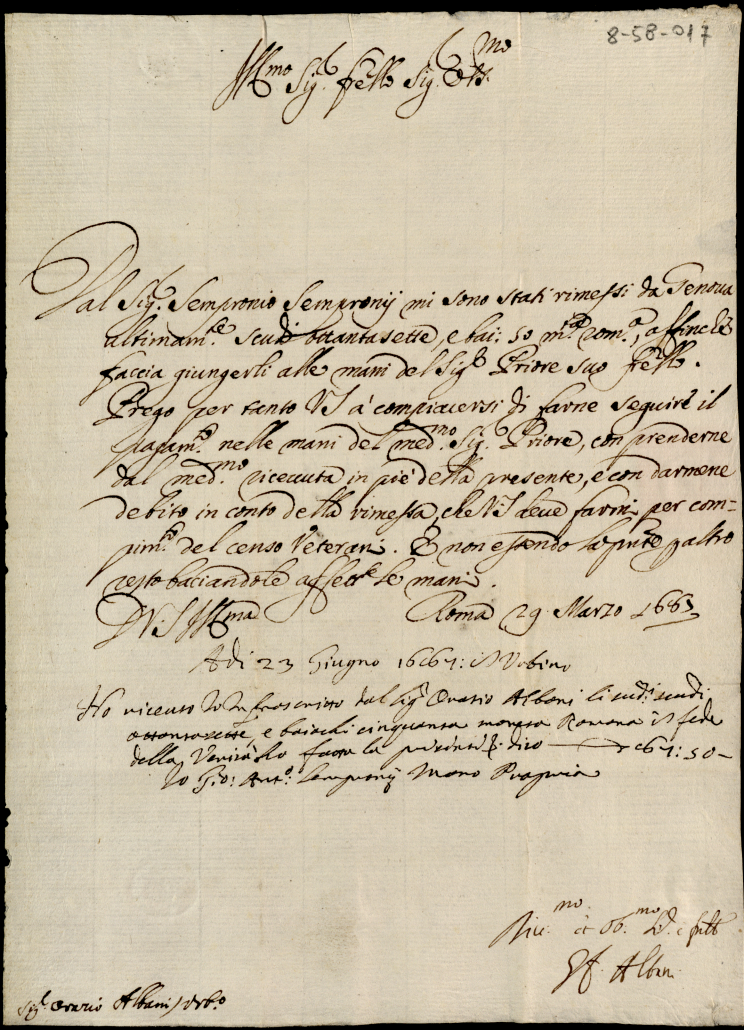 8-58-017
Ill.mo Sig.r fr̃ello Sig.r Oss.mo
Dal Sig.r Sempronio Sempronij mi sono stati rimessi da Genova
ultimam.te scudi ottantasette, e bai: 50 m.ta rom.a, affinche
faccia giungerli alle mani del Sig.r Priore suo fr̃ello.
Prego per tanto VS à compiacersi di farne seguire il
pagam.to nelle mani del med.mo Sig.r Priore, con prenderne
dal med.mo riceuuta in piè della presente, e con darmene
debito in conto della rimessa, che VS deue farmi per com=
pim.to del censo Veterani. E non essendo la pñte p altro
resto baciandole affett.te le mani.
D V.S Ill.ma Roma 29 Marzo 1667
Adi 23 Giugno 1667: in Urbino
Ho riceuto Io Infrascritto dal Sig.r Oratio Albani li sud.i scudi
ottantasette, e baiochi cinquanta moneta Romana in fede
della Verità ho fatto la presente dico — 87:50 —
Io Gio: Ant.o Sempronij Mano Propria
Diu.mo et Ob.mo fr̃ello
Albani
Sig.r Orazio Albani / Urb.o